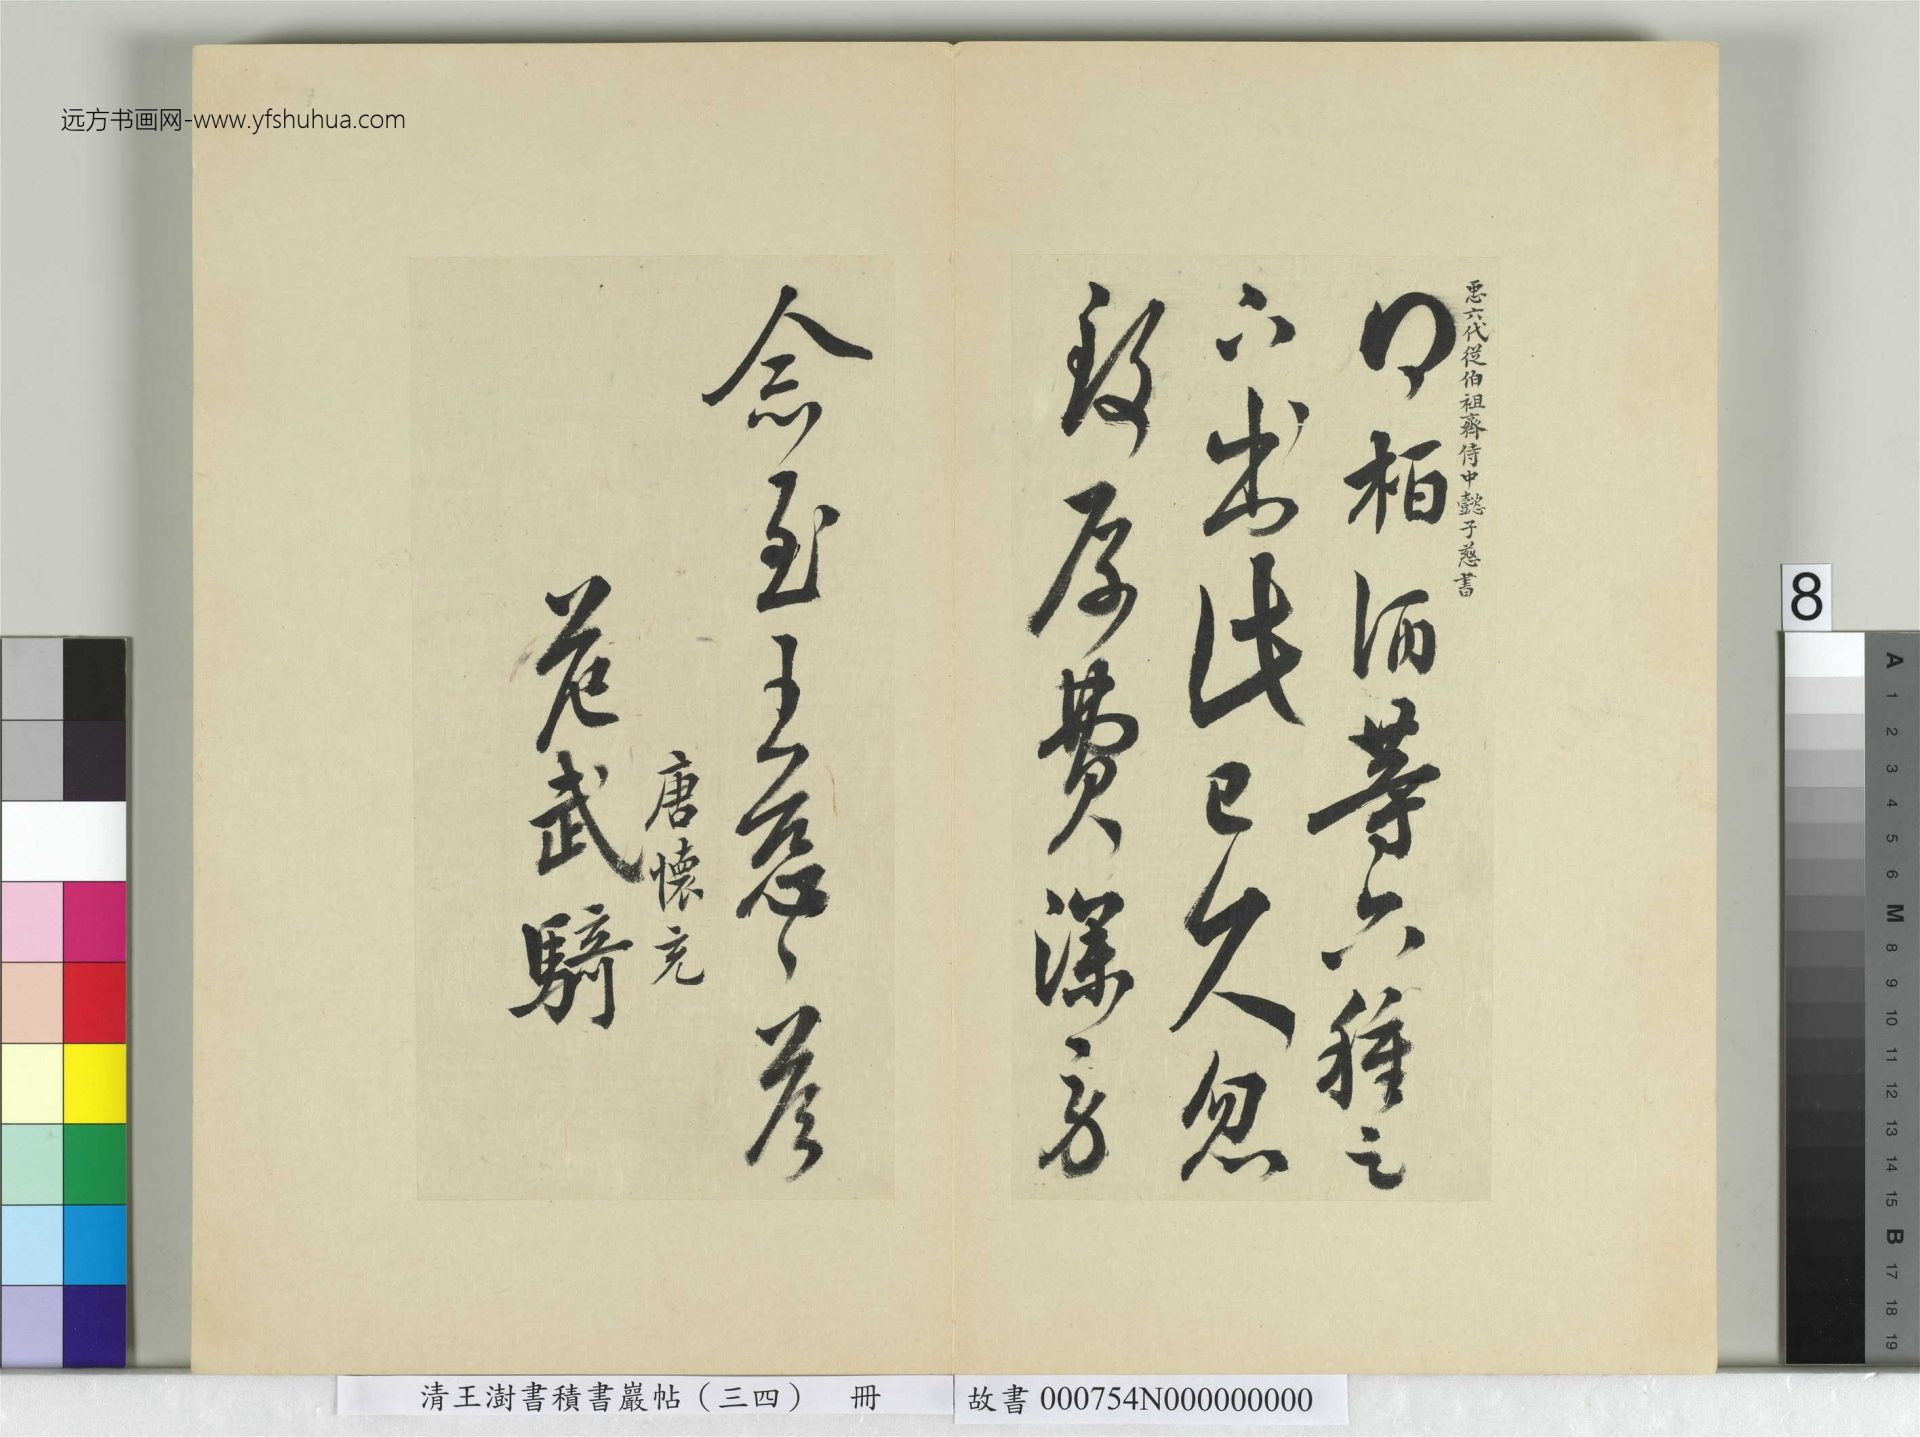 远方书画网-www.yfshuhua.com
𢘑六代從伯祖齊侍中懿子慈書
得柏酒等六種足
下出此已久忽
致厚費深勞
念至王慈具答
唐懷充
范武騎
清王澍書積書巖帖（三四） 冊
故書 000754N000000000
8
A
1
2
3
4
5
6
M
8
9
10
11
12
13
14
15
B
17
18
19